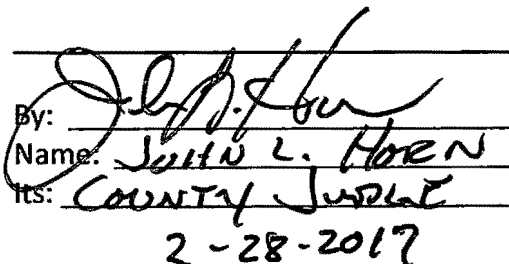 By:
Name: JOHN L. HORN
Its: COUNTY JUDGE
2-28-2017